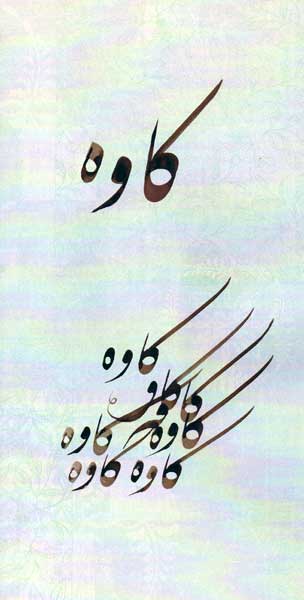 کاوه
کاوه
کاوه
کاوه
کاوه
کاوه
کاوه کاوه